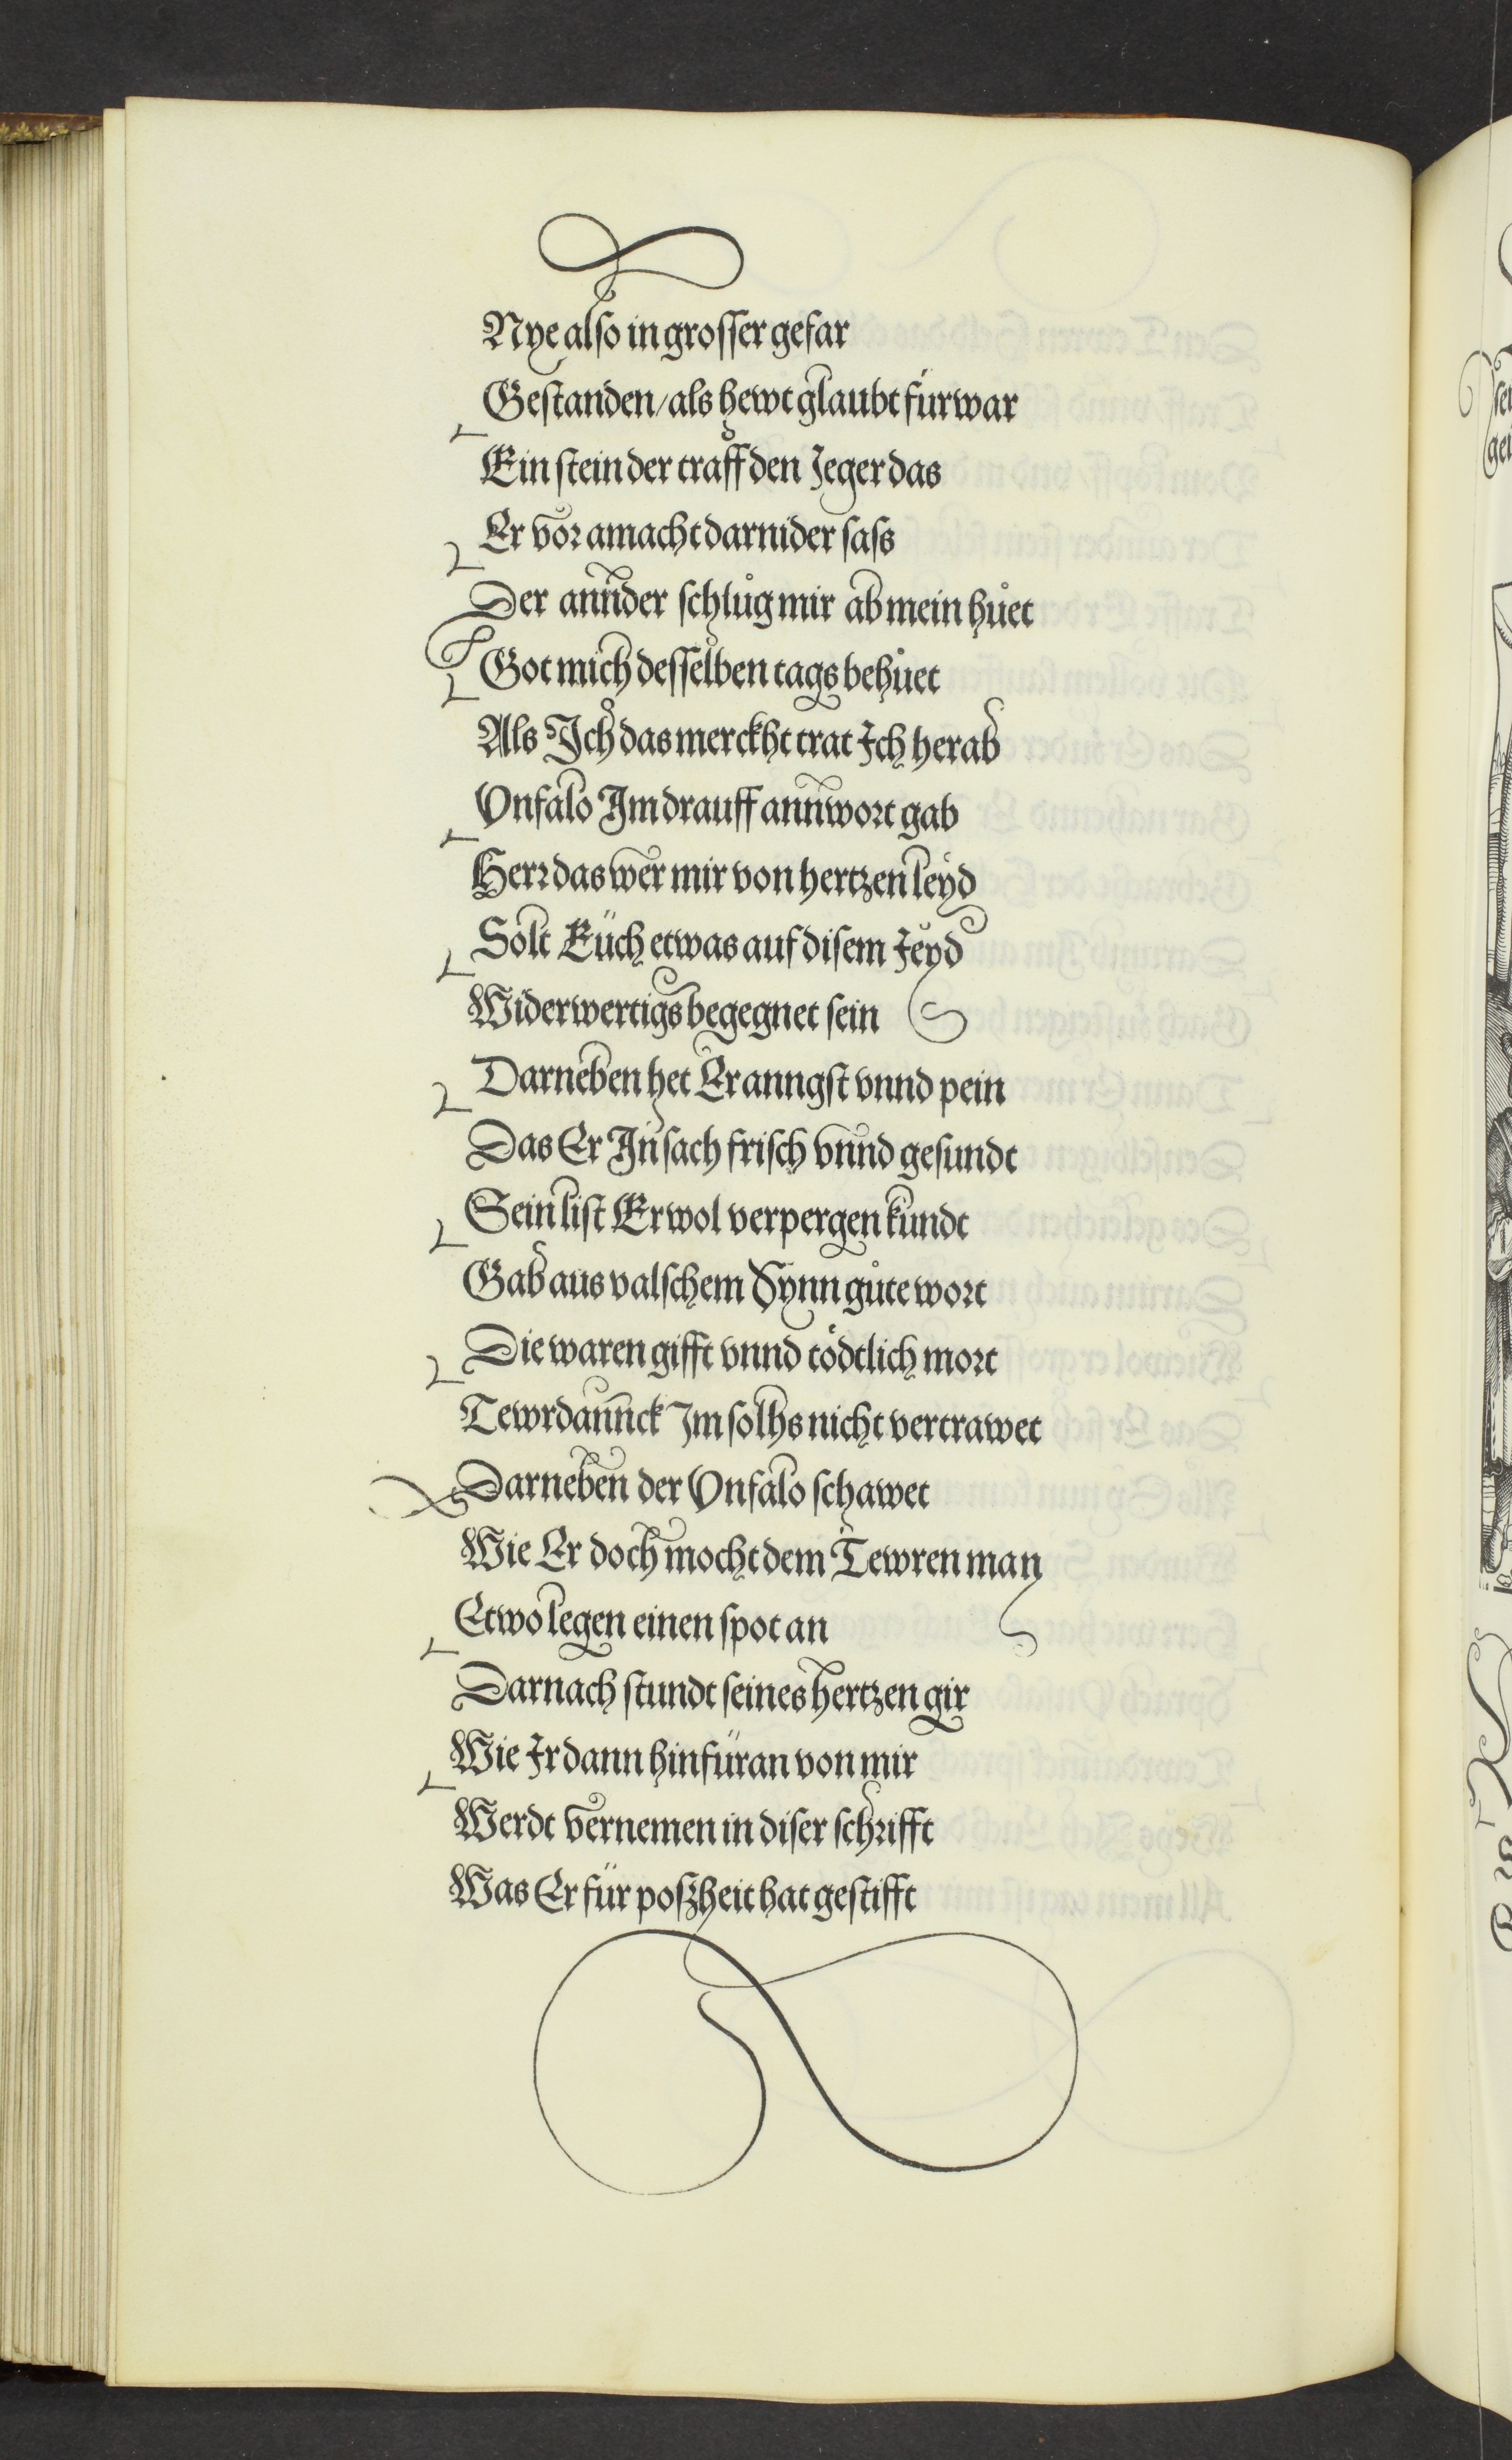 Nye also in grosser gefar
Gestanden/als hewt glaubt fürwar
Ein stein der traff den Jeger das
Er vor amacht darnider sass
Der annder schlůg mir ab mein hůet
Got mich desselben tags behůet
Als Ich das merckht trat Ich herab
Vnfalo Im drauff anntwort gab
Herr das wer mir von hertzen leyd
Solt Eüch etwas auf disem Jeyd
Widerwertigs begegnet sein
Darneben het Er anngst vnnd pein
Das Er In sach frisch vnnd gesundt
Sein list Er wol verpergen kundt
Gab aus valschem Synn gůte wort
Die waren gifft vnnd tödtlich mort
Tewrdannck Im solhs nicht vertrawet
Darneben der Vnfalo schawet
Wie Er doch mocht dem Tewren man
Etwo legen einen spot an
Darnach stundt seines hertzen gir
Wie Ir dann hinfüran von mir
Werdt vernemen in diser schrifft
Was Er für poßheit hat gestifft